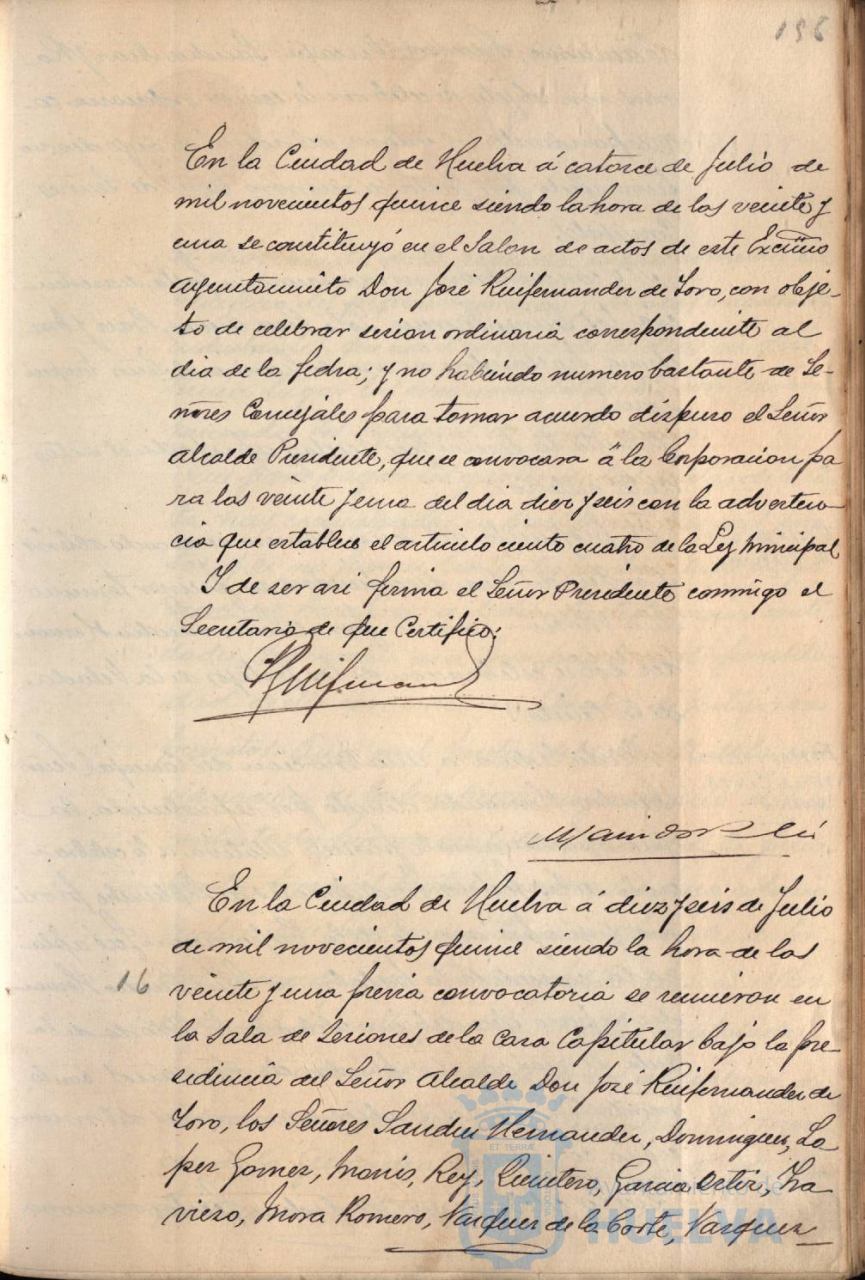 156
En la Ciudad de Huelva á catorce de Julio de
mil novecientos quince siendo la hora de las veinte y
una se constituyó en el Salon de actos de este Excmo
Ayuntamiento Don José Ruifernandez de Toro, con obje-
to de celebrar sesion ordinaria correspondiente al
dia de la fecha; y no habiendo numero bastante de Se-
ñores Concejáles para tomar acuerdo dispuso el Señor
Alcalde Presidente, que se convocara á la Corporacion pa
ra las veinte y una del dia diez y seis con la adverten-
cia que establece el articulo ciento cuatro de la Ley Municipal
Y de ser asi firma el Señor Presidente conmigo el
Secretario de que Certifico:
Ruifernandez
En la Ciudad de Huelva á diez y seis de Julio
de mil novecientos quince siendo la hora de las
16
veinte y una previa convocatoria se reunieron en
la Sala de Sesiones de la Casa Capitular bajo la pre-
sidencia del Señor Alcalde Don José Ruifernandez de
Toro, los Señores Sanchez Hernandez, Dominguez, Lo
pez Gomez, Monis, Rey, Quintero, Garcia Ortiz, Tra
vieso, Mora Romero, Vazquez de la Corte, Vazquez
ET TERRÆ
Ayuntamiento de
HUELVA